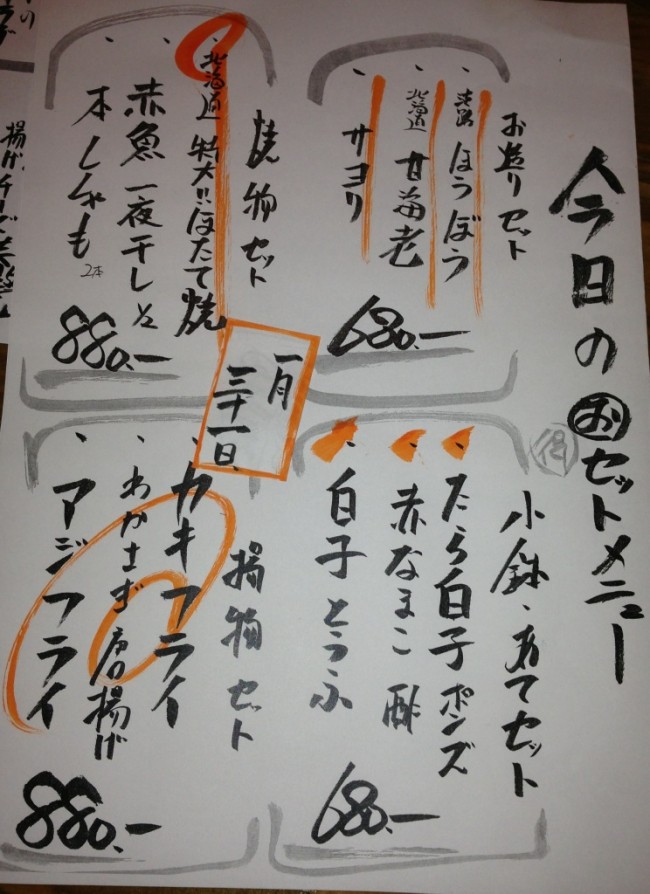 今日のお得セットメニュー
お造りセット
、ほうぼう
、北海道 甘海老
、サヨリ
680.-
焼物セット
、北海道 特大!!ほたて焼
、赤魚一夜干し1/2
、本ししゃも 2本
880.-
一月
三十一日
小鉢・あてセット
、たら白子ポンズ
、赤なまこ酢
、白子とうふ
680.-
揚物セット
、カキフライ
、わかさぎ唐揚げ
、アジフライ
880.-
揚げチーズ